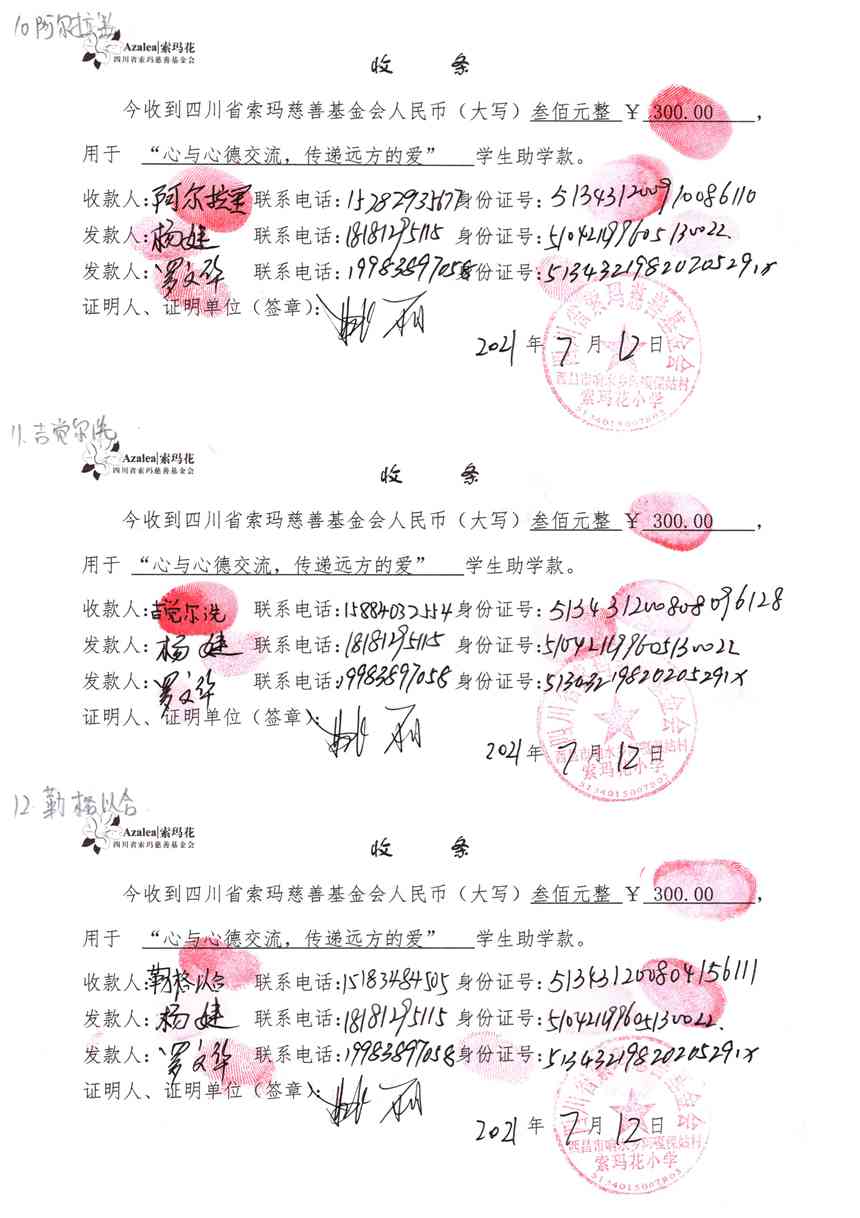 10 阿尔拉
Azalea|索玛花
四川省索玛慈善基金会
收 条
今收到四川省索玛慈善基金会人民币（大写）叁佰元整 ￥ 300.00 ，
用于 “心与心德交流，传递远方的爱” 学生助学款。
收款人:阿尔拉 联系电话: 身份证号:
发款人:杨建 联系电话:18181295115 身份证号:
发款人:罗文华 联系电话:19983897058 身份证号:51343219820205291x
证明人、证明单位（签章）:
2021 年 7 月 12 日
四川省索玛慈善基金会
西昌市响水乡 村
索玛花小学
11.吉觉尔洗
Azalea|索玛花
四川省索玛慈善基金会
收 条
今收到四川省索玛慈善基金会人民币（大写）叁佰元整 ￥ 300.00 ，
用于 “心与心德交流，传递远方的爱” 学生助学款。
收款人:吉觉尔洗 联系电话:15884032554 身份证号:513431200808096128
发款人:杨建 联系电话:18181295115 身份证号:
发款人:罗文华 联系电话:19983897058 身份证号:
证明人、证明单位（签章）:
2021 年 7 月 12 日
索玛花小学
12.勒格以合
Azalea|索玛花
四川省索玛慈善基金会
收 条
今收到四川省索玛慈善基金会人民币（大写）叁佰元整 ￥ 300.00 ，
用于 “心与心德交流，传递远方的爱” 学生助学款。
收款人:勒格以合 联系电话:15183484505 身份证号:513431200804156111
发款人:杨建 联系电话:18181295115 身份证号:
发款人:罗文华 联系电话:19983897058 身份证号:51343219820205291x
证明人、证明单位（签章）:
2021 年 7 月 12 日
索玛花小学